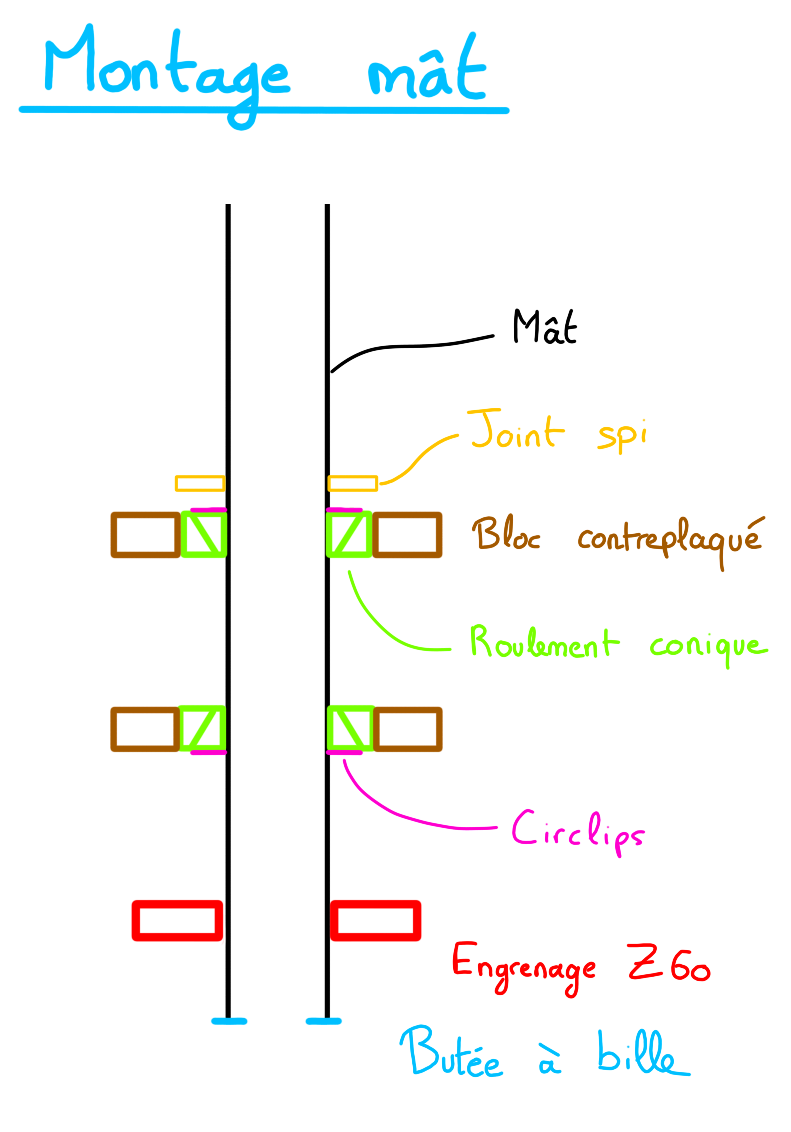 Montage mât
Mât
Joint spi
Bloc contreplaqué
Roulement conique
Circlips
Engrenage Z60
Butée à bille